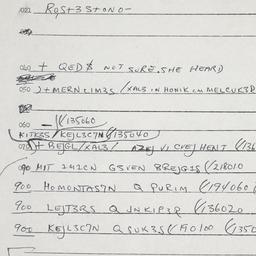 021 RQST3 STONO-
040 + QED$ NOT SURE. SHE HEARD
050 )+MERNLIM3S /XAL3 IN HONIK IM MELCUK3R
060 — (135060
KITK3S/KEJL3C7N (135040)
070 + BEJGL/XAL3/ VICVEJ HEN7 (136
090 MIT 141CN G5VEN BREJGIS (218010
900 HOMONTAS7N Q PURIM (194060
900 LEJT3RS Q JNKIP3R (136020
900 KEJL3C7N Q SUK3S (190100 (1350